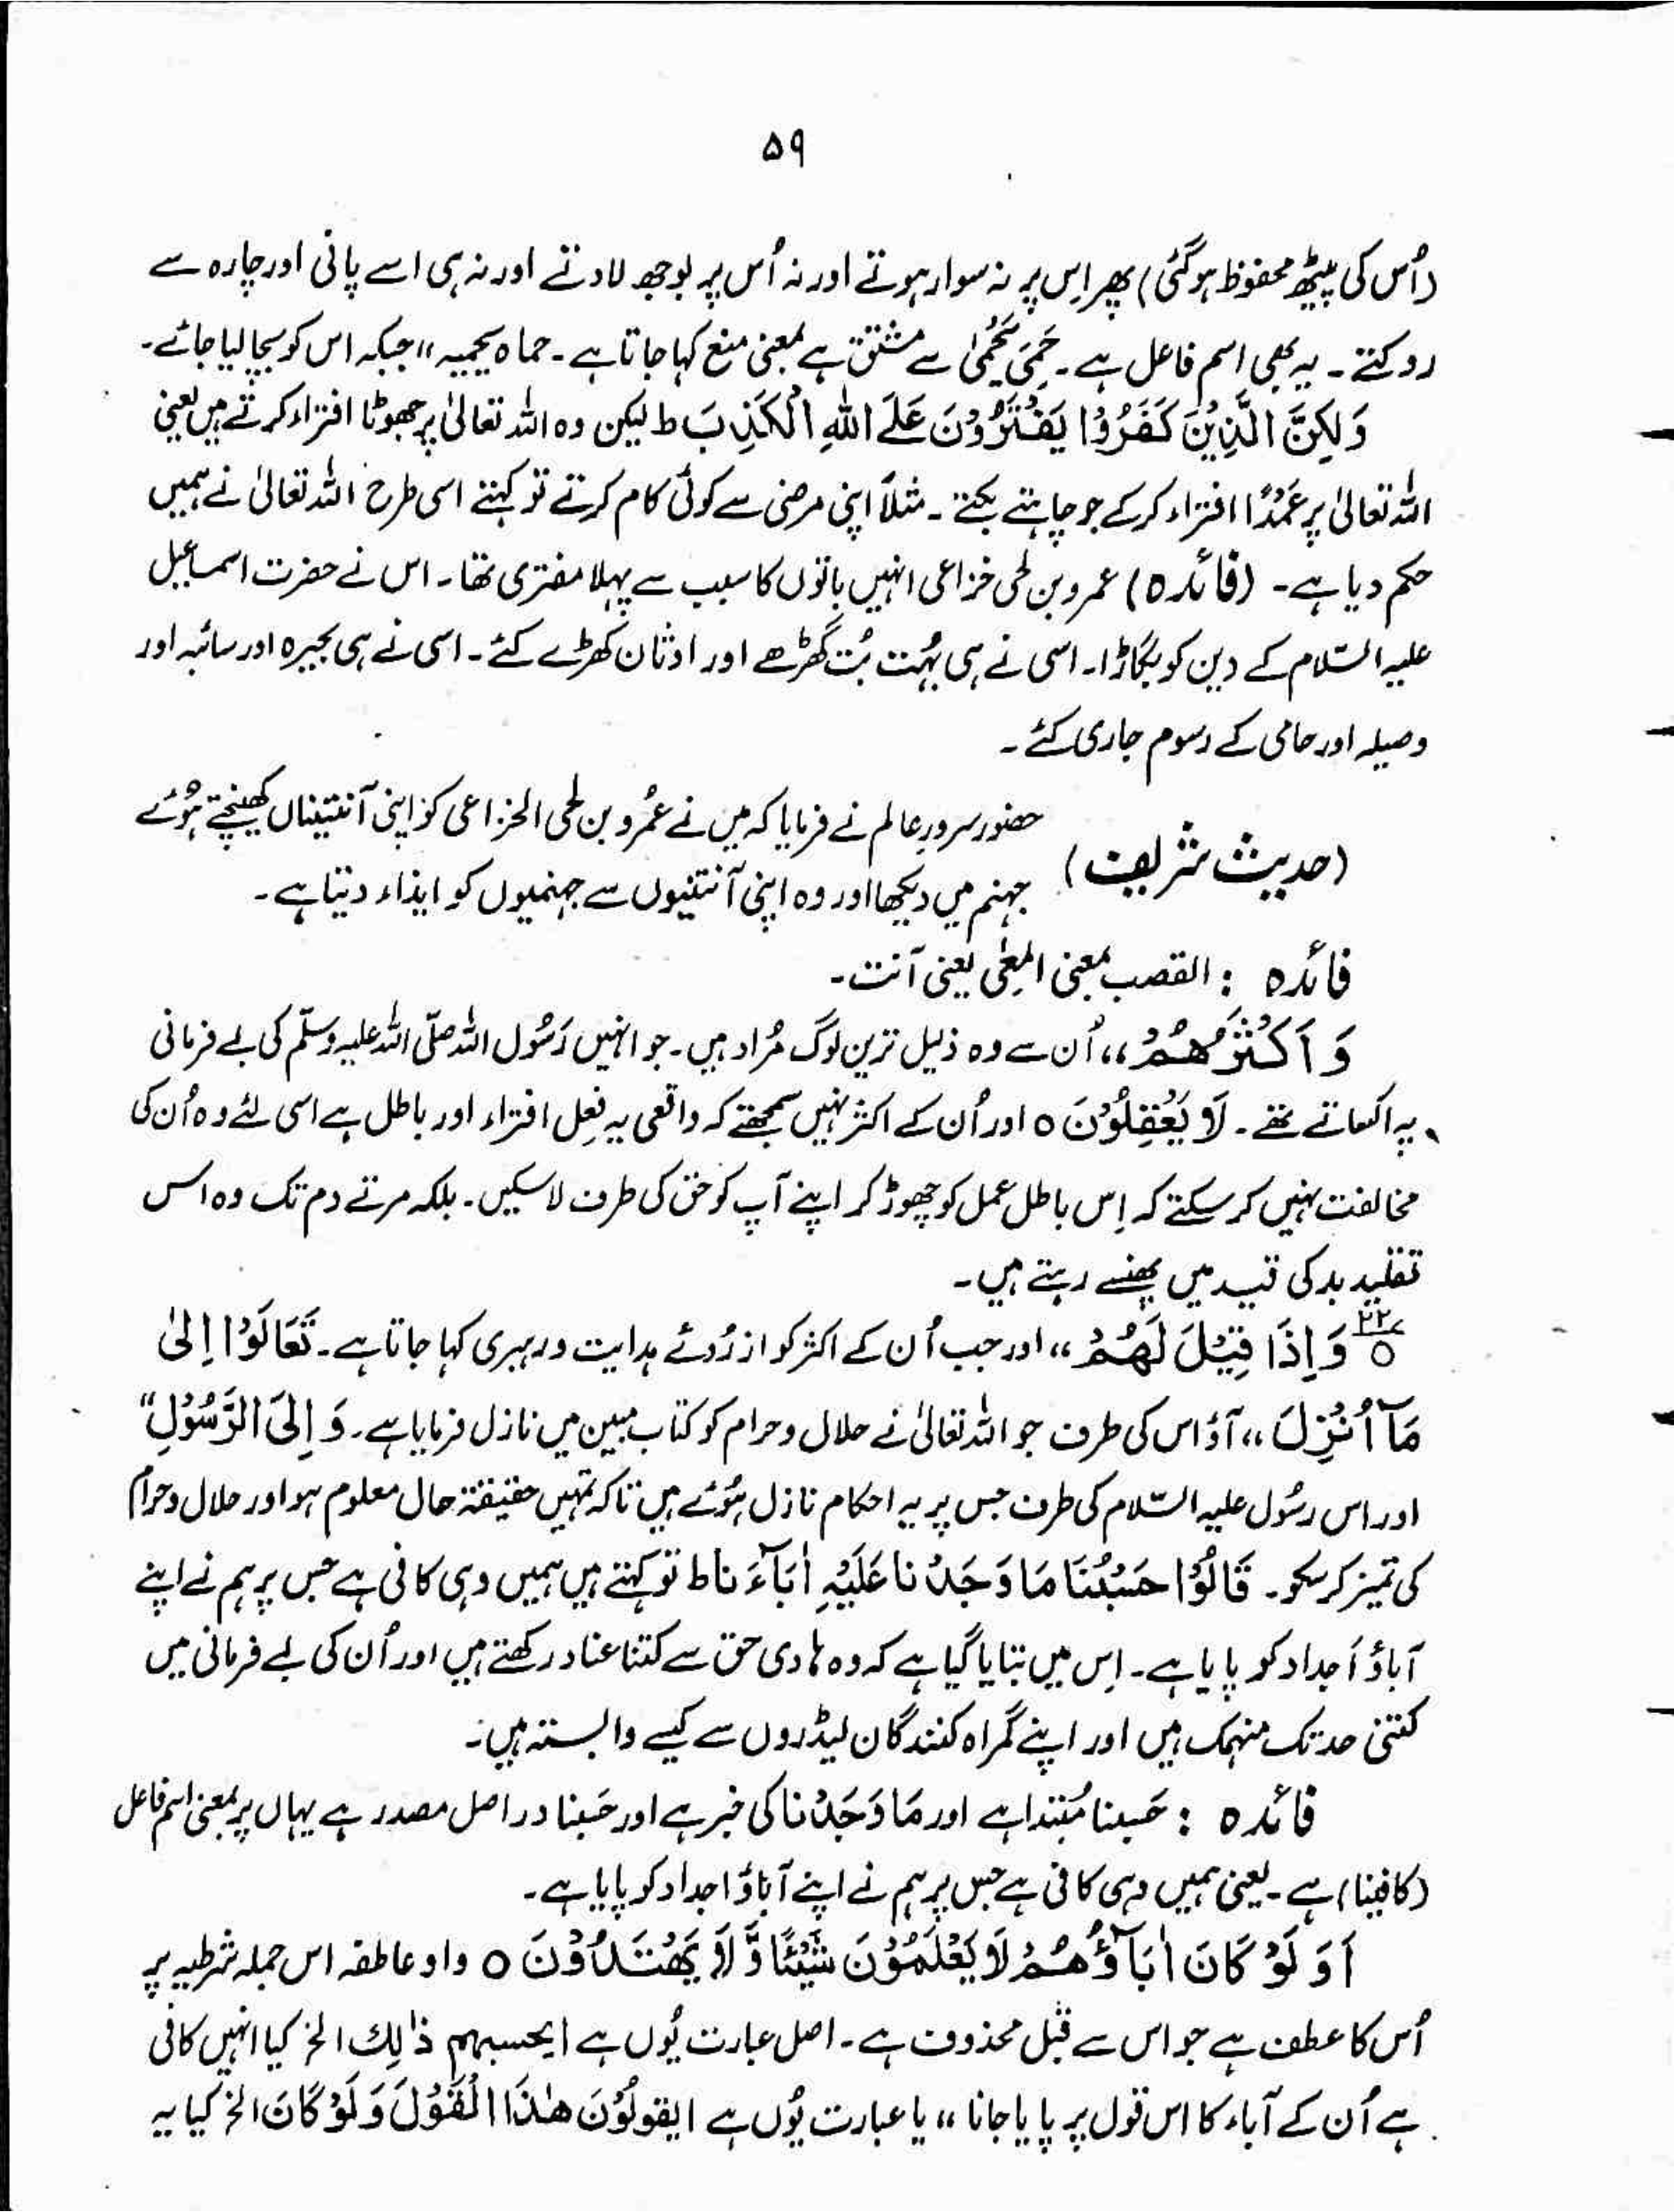 ۵۹
(اُس کی پیٹھ محفوظ ہو گئی) پھر اِس پر نہ سوار ہوتے اور نہ اُس پر بوجھ لادتے اور نہ ہی اسے پانی اور چارہ سے
روکتے ۔ یہ بھی اسم فاعل ہے ۔ حَمَیَ یَحْمِیْ سے مشتق ہے بمعنی منع کہا جاتا ہے ۔ حماہ یحمیہ ،، جبکہ اس کو بچا لیا جائے۔
وَ لٰکِنَّ الَّذِیْنَ کَفَرُوْا یَفْتَرُوْنَ عَلَے اللّٰہِ الْکَذِبَ ط لیکن وہ اللہ تعالیٰ پر جھوٹا افتراء کرتے ہیں یعنی
اللہ تعالیٰ پر عَمْدًا افتراء کرکے جو چاہتے بکتے ۔ مثلاً اپنی مرضی سے کوئی کام کرتے تو کہتے اسی طرح اللہ تعالیٰ نے ہمیں
حکم دیا ہے ۔ (فائدہ) عمرو بن لحی خزاعی انہیں باتوں کا سبب سے پہلا مفتری تھا ۔ اس نے حضرت اسماعیل
علیہ السّلام کے دین کو بگاڑا ۔ اسی نے ہی بُہت بُت گھڑے اور اوثان کھڑے کئے ۔ اسی نے ہی بحیرہ اور سائبہ اور
وصیلہ اور حامی کے رسوم جاری کئے ۔
(حدیث شریف) حضور سرورِ عالم نے فرمایا کہ میں نے عمْرو بن لحی الخزاعی کو اپنی آنتیناں کھینچتے ہُوئے
جہنم میں دیکھا اور وہ اپنی آنتنیوں سے جہنمیوں کو ایذاء دیتا ہے ۔
فائدہ : القصب بمعنی المِعٰی یعنی آنت ۔
وَ اَکْثَرُھُمْ ،، اُن سے وہ ذلیل ترین لوگ مُراد ہیں ۔ جو انہیں رَسُول اللہ صلّی اللہ علیہ وسلّم کی بے فرمانی
پہ اکساتے تھے ۔ لَا یَعْقِلُوْنَ ○ اور اُن کے اکثر نہیں سمجھتے کہ واقعی یہ فِعل افتراء اور باطل ہے اسی لئے وہ اُن کی
مخالفت نہیں کر سکتے کہ اِس باطل عمل کو چھوڑ کر اپنے آپ کو حق کی طرف لا سکیں ۔ بلکہ مرتے دم تک وہ اس
تقلید بد کی قید میں پھنسے رہتے ہیں ۔
○ وَ اِذَا قِیْلَ لَھُمْ ،، اور جب اُن کے اکثر کو از رُوئے ہدایت و رہبری کہا جاتا ہے ۔ تَعَالَوْا اِلیٰ
مَآ اُنْزِلَ ،، آؤ اس کی طرف جو اللہ تعالیٰ نے حلال و حرام کو کتاب مبین میں نازل فرمایا ہے ۔ وَ اِلَی الرَّسُوْلِ ”
اور اس رسُول علیہ السّلام کی طرف جس پر یہ احکام نازل ہُوئے ہیں تاکہ تمہیں حقیقتہ حال معلوم ہو اور حلال و حرام
کی تمیز کر سکو ۔ قَالُوْا حَسْبُنَا مَا وَجَدْنَا عَلَیْہِ اٰبَآءَنَا ط تو کہتے ہیں ہمیں وہی کافی ہے جس پر ہم نے اپنے
آباؤ اَجداد کو پایا ہے ۔ اِس میں بتایا گیا ہے کہ وہ ہادی حق سے کتنا عناد رکھتے ہیں اور اُن کی بے فرمانی میں
کتنی حد تک منہمک ہیں اور اپنے گمراہ کنندگان لیڈروں سے کیسے وابستہ ہیں ۔
فائدہ : حَسبنا مُبتدا ہے اور مَا وَجَدْنا کی خبر ہے اور حَسبنا در اصل مصدر ہے یہاں پر بمعنی اسم فاعل
(کافینا) ہے ۔ یعنی ہمیں وہی کافی ہے جس پر ہم نے اپنے آباؤ اجداد کو پایا ہے ۔
اَوَ لَوْ کَانَ اٰبَآؤُھُمْ لَا یَعْلَمُوْنَ شَیْئًا وَّ لَا یَھْتَدُوْنَ ○ واو عاطفہ اس جملہ شرطیہ پر
اُس کا عطف ہے جو اس سے قبل محذوف ہے ۔ اصل عبارت یُوں ہے ایحسبہم ذٰلِک الخ کیا انہیں کافی
ہے اُن کے آباء کا اس قول پر پایا جانا ،، یا عبارت یُوں ہے ایقولُوْنَ ھٰذَا الْقَوْلَ وَ لَوْ کَانَ الخ کیا یہ